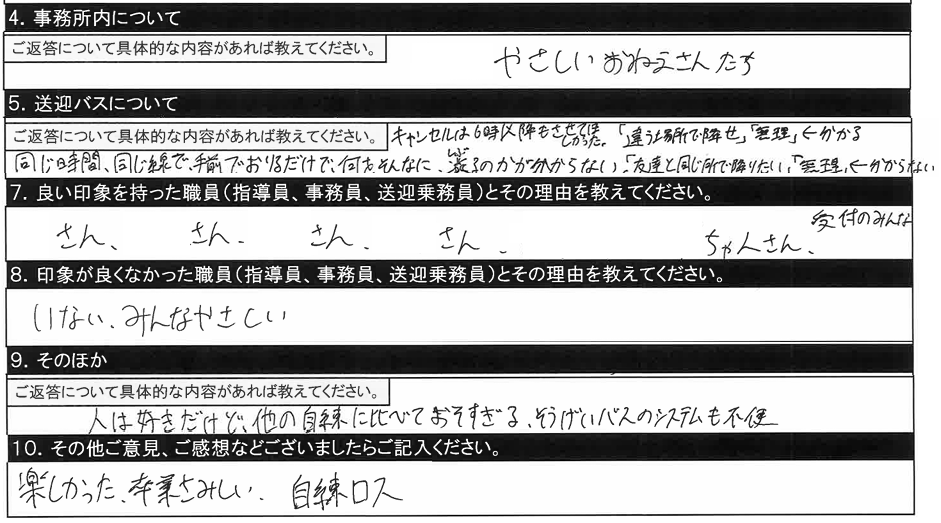 4. 事務所内について
ご返答について具体的な内容があれば教えてください。
やさしいおねえさんたち
5. 送迎バスについて
ご返答について具体的な内容があれば教えてください。 キャンセルは6時以降もさせてほしかった。「違う場所で降せ」「無理」←分かる
同じ時間、同じ線で、手前でおりるだけで、何をそんなに、渋るのかが分からない、「友達と同じ所で降りたい」「無理」←分からない
7. 良い印象を持った職員(指導員、事務員、送迎乗務員)とその理由を教えてください。
受付のみんな
さん、 さん、 さん、 さん、 ちゃんさん、
8. 印象が良くなかった職員(指導員、事務員、送迎乗務員)とその理由を教えてください。
いない、みんなやさしい
9. そのほか
ご返答について具体的な内容があれば教えてください。
人は好きだけど、他の自練に比べておそすぎる、そうげいバスのシステムも不便
10. その他ご意見、ご感想などございましたらご記入ください。
楽しかった、卒業さみしい、自練ロス